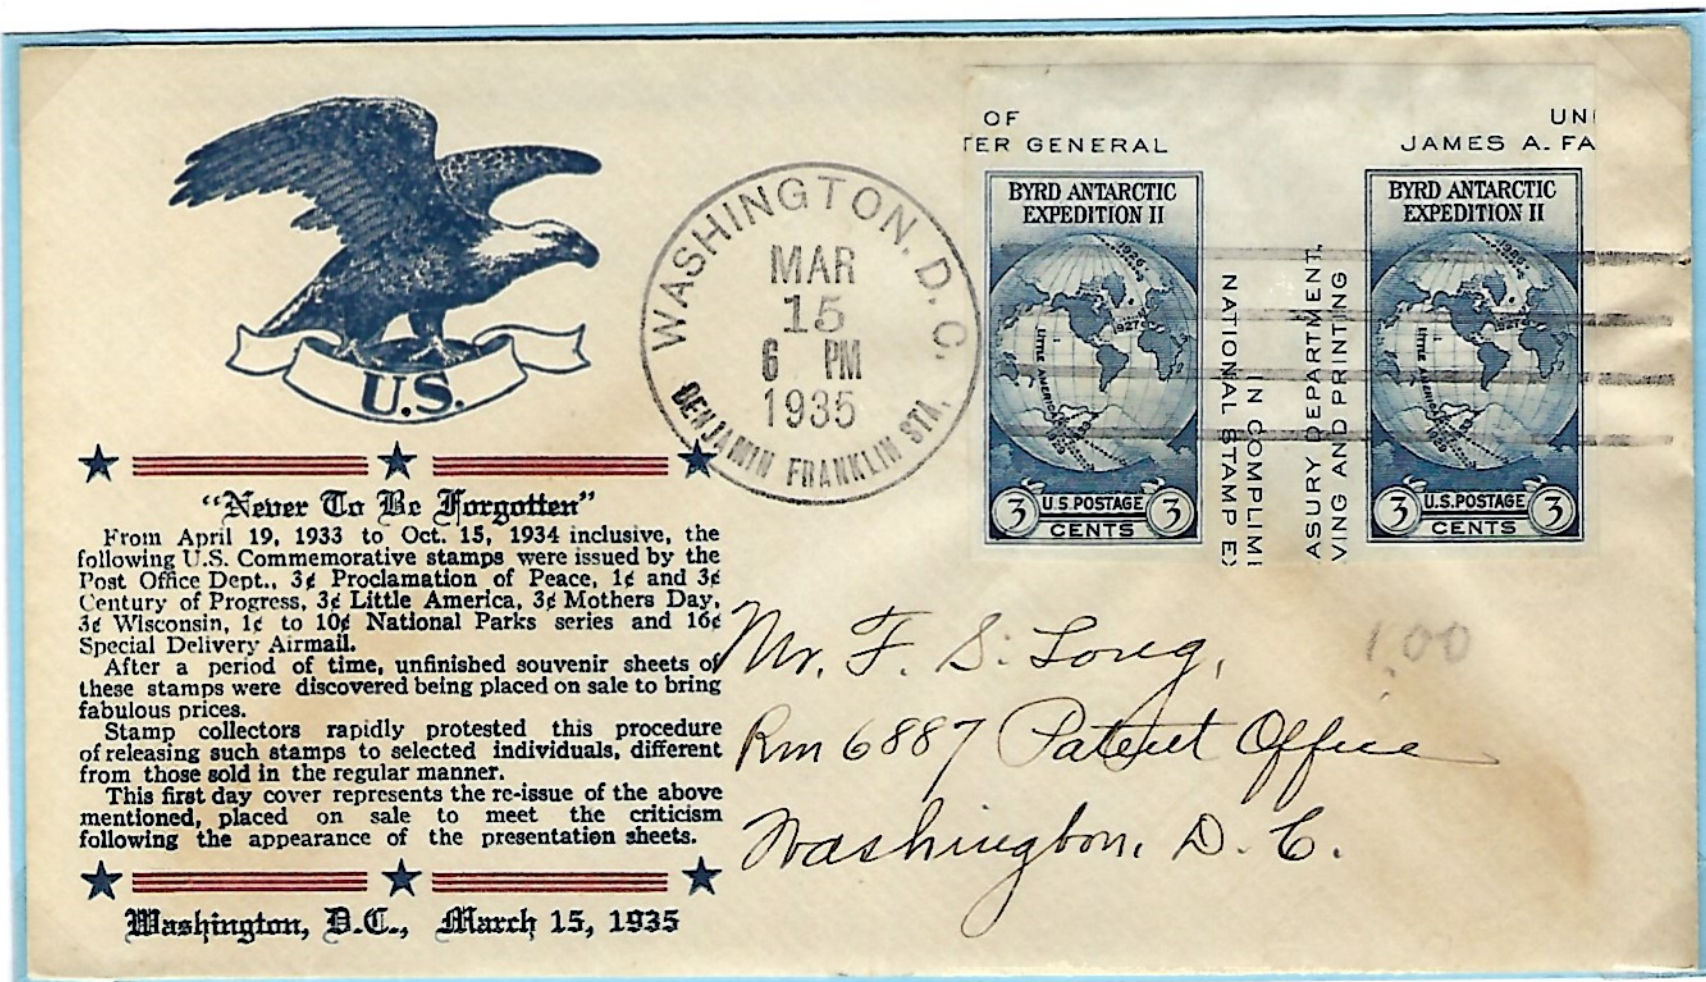 U.S.
"Never To Be Forgotten"
From April 19, 1933 to Oct. 15, 1934 inclusive, the
following U.S. Commemorative stamps were issued by the
Post Office Dept., 3¢ Proclamation of Peace, 1¢ and 3¢
Century of Progress, 3¢ Little America, 3¢ Mothers Day,
3¢ Wisconsin, 1¢ to 10¢ National Parks series and 16¢
Special Delivery Airmail.
After a period of time, unfinished souvenir sheets of
these stamps were discovered being placed on sale to bring
fabulous prices.
Stamp collectors rapidly protested this procedure
of releasing such stamps to selected individuals, different
from those sold in the regular manner.
This first day cover represents the re-issue of the above
mentioned, placed on sale to meet the criticism
following the appearance of the presentation sheets.
Washington, D.C., March 15, 1935
WASHINGTON, D.C.
MAR
15
6 PM
1935
BENJAMIN FRANKLIN STA.
OF
TER GENERAL
UNI
JAMES A. FA
BYRD ANTARCTIC
EXPEDITION II
1926
1927
LITTLE AMERICA
1929
3 U.S. POSTAGE 3
CENTS
NATIONAL STAMP EX
IN COMPLIME
ASURY DEPARTMENT,
VING AND PRINTING
BYRD ANTARCTIC
EXPEDITION II
1926
1927
LITTLE AMERICA
1929
3 U.S. POSTAGE 3
CENTS
Mr. F. S. Long,
Rm 6887 Patent Office
Washington, D. C.
1.00